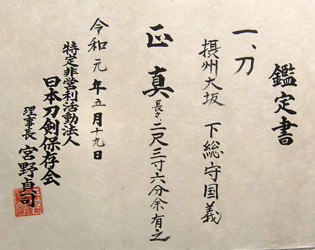 鑑定書
一、刀
摂州大坂 下総守国義
正真 長さ二尺三寸六分余有之
令和元年五月十九日
特定非営利活動法人
日本刀剣保存会
理事長 宮野貞司